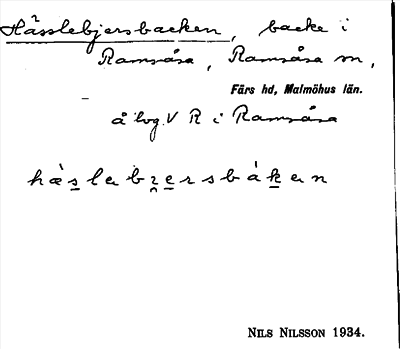 Hässlebjersbacken, backe i
Ramsåsa, Ramsåsa sn,
Färs hd, Malmöhus län.
å hg. V R i Ramsåsa
hæ̀s̲lebɪ̯e̲rsbák̲en
NILS NILSSON 1934.